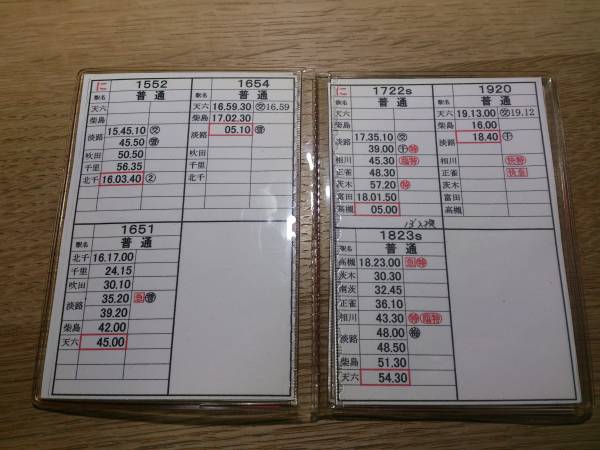 に 1552
駅名 普通
天六
柴島
淡路 15.45.10 ㊋
45.50
吹田 50.50
千里 56.35
北千 16.03.40 ②
1654
駅名 普通
天六 16.59.30 16.59
柴島 17.02.30
淡路 05.10
吹田
千里
北千
1651
駅名 普通
北千 16.17.00
千里 24.15
吹田 30.10
淡路 35.20 急
39.20
柴島 42.00
天六 45.00
に 1722s
駅名 普通
天六
柴島
淡路 17.35.10
39.00 下 特
相川 45.30 臨特
正雀 48.30
茨木 57.20 特
富田 18.01.50
高槻 05.00
1920
駅名 普通
天六 19.13.00 19.12
柴島 16.00
淡路 18.40 下
相川 快特
正雀 快急
茨木
富田
高槻
1823s
駅名 普通
高槻 18.23.00 急 特
茨木 30.30
南茨 32.45
正雀 36.10
相川 43.30 特 臨特
淡路 48.00 梅
48.50
柴島 51.30
天六 54.30